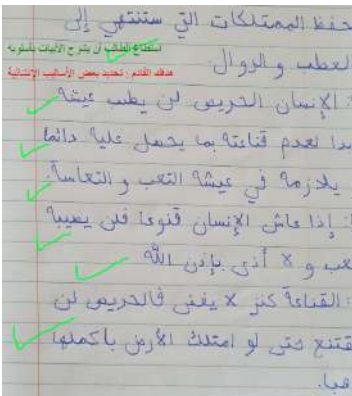 حفظ الممتلكات التي ستنتهي إلى
استطاع الطالب أن يشرح الأبيات بأسلوبه
العطب والزوال
هدفك القادم : تحديد بعض الأساليب الإنشائية
: الإنسان الحريص لن يطب عيشه
بدا لعدم قناعته بما يحصل عليه دائما
يلازمه في عيشة التعب و التعاسة
: إذا عاش الإنسان قنوعا فلن يصيبه
تعب و لا أذى بإذن الله
: القناعة كنز لا يفنى فالحريص لن
يقتنع حتى لو امتلك الأرض بأكملها